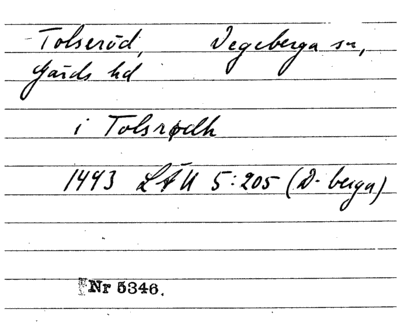 Tolseröd, Degeberga sn,
Gärds hd
i Tolsrødh
1493 LÄU 5:205 (D-berga)
Nr 5346.